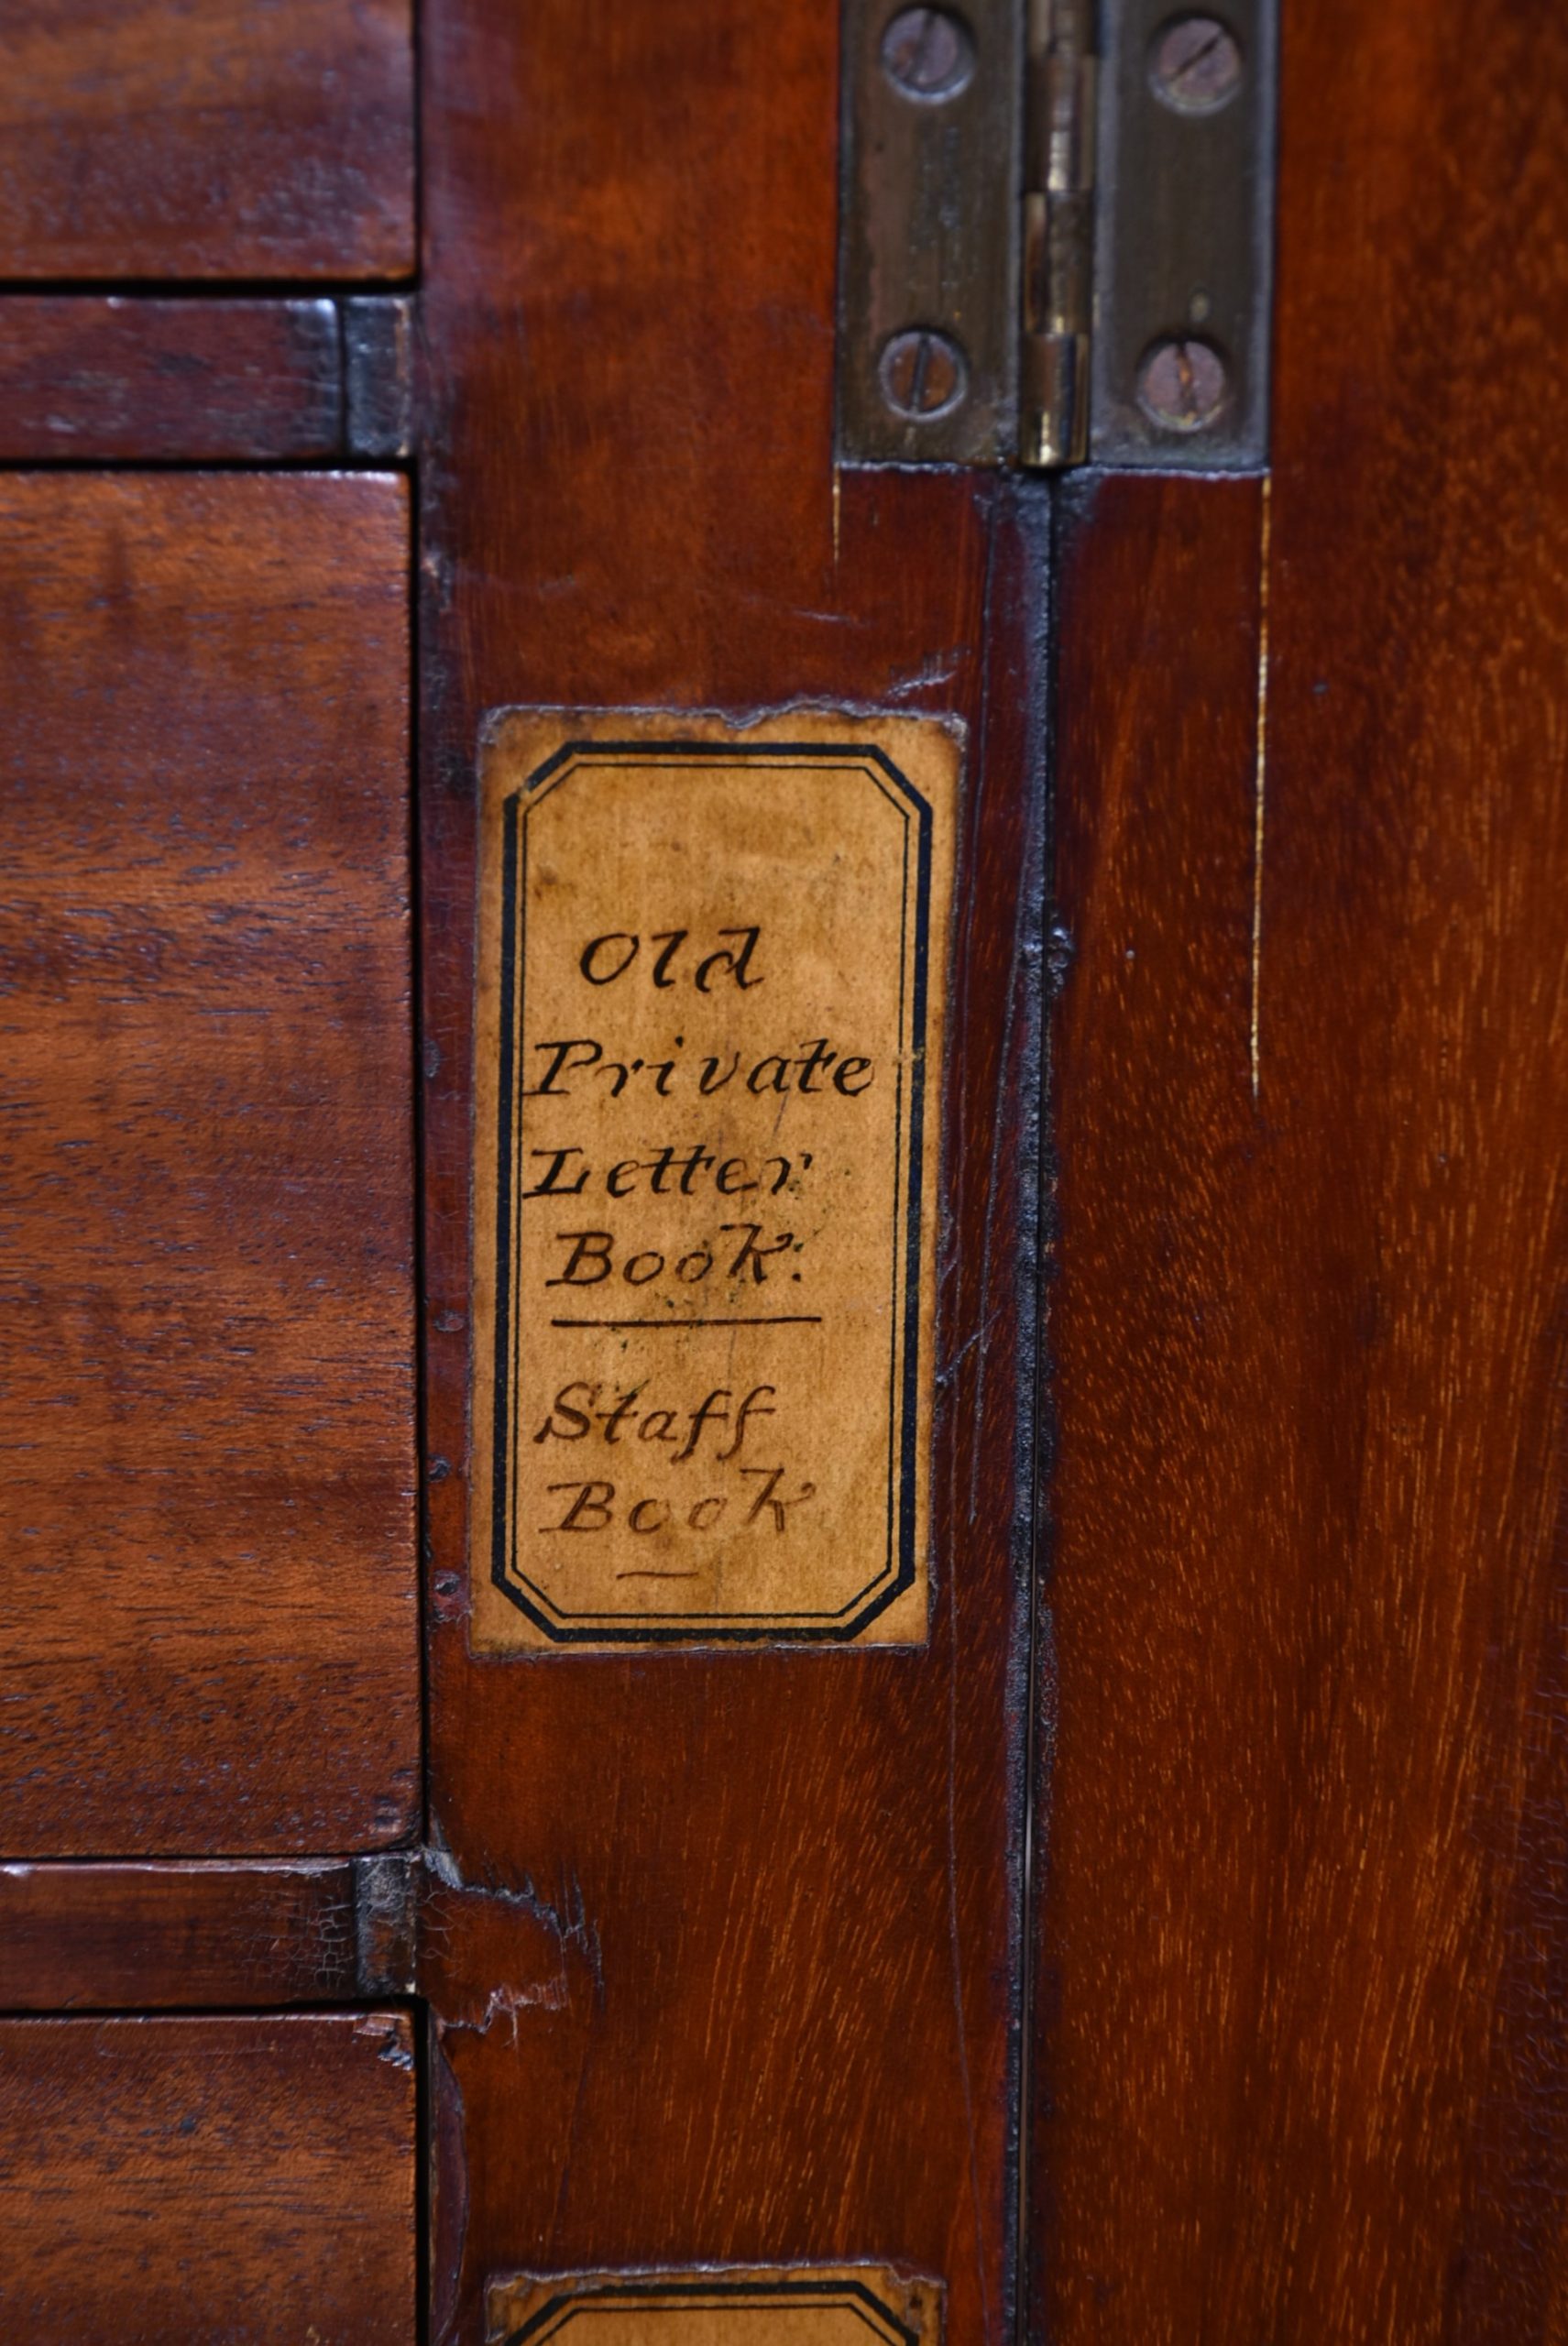 Old
Private
Letter
Book.
Staff
Book